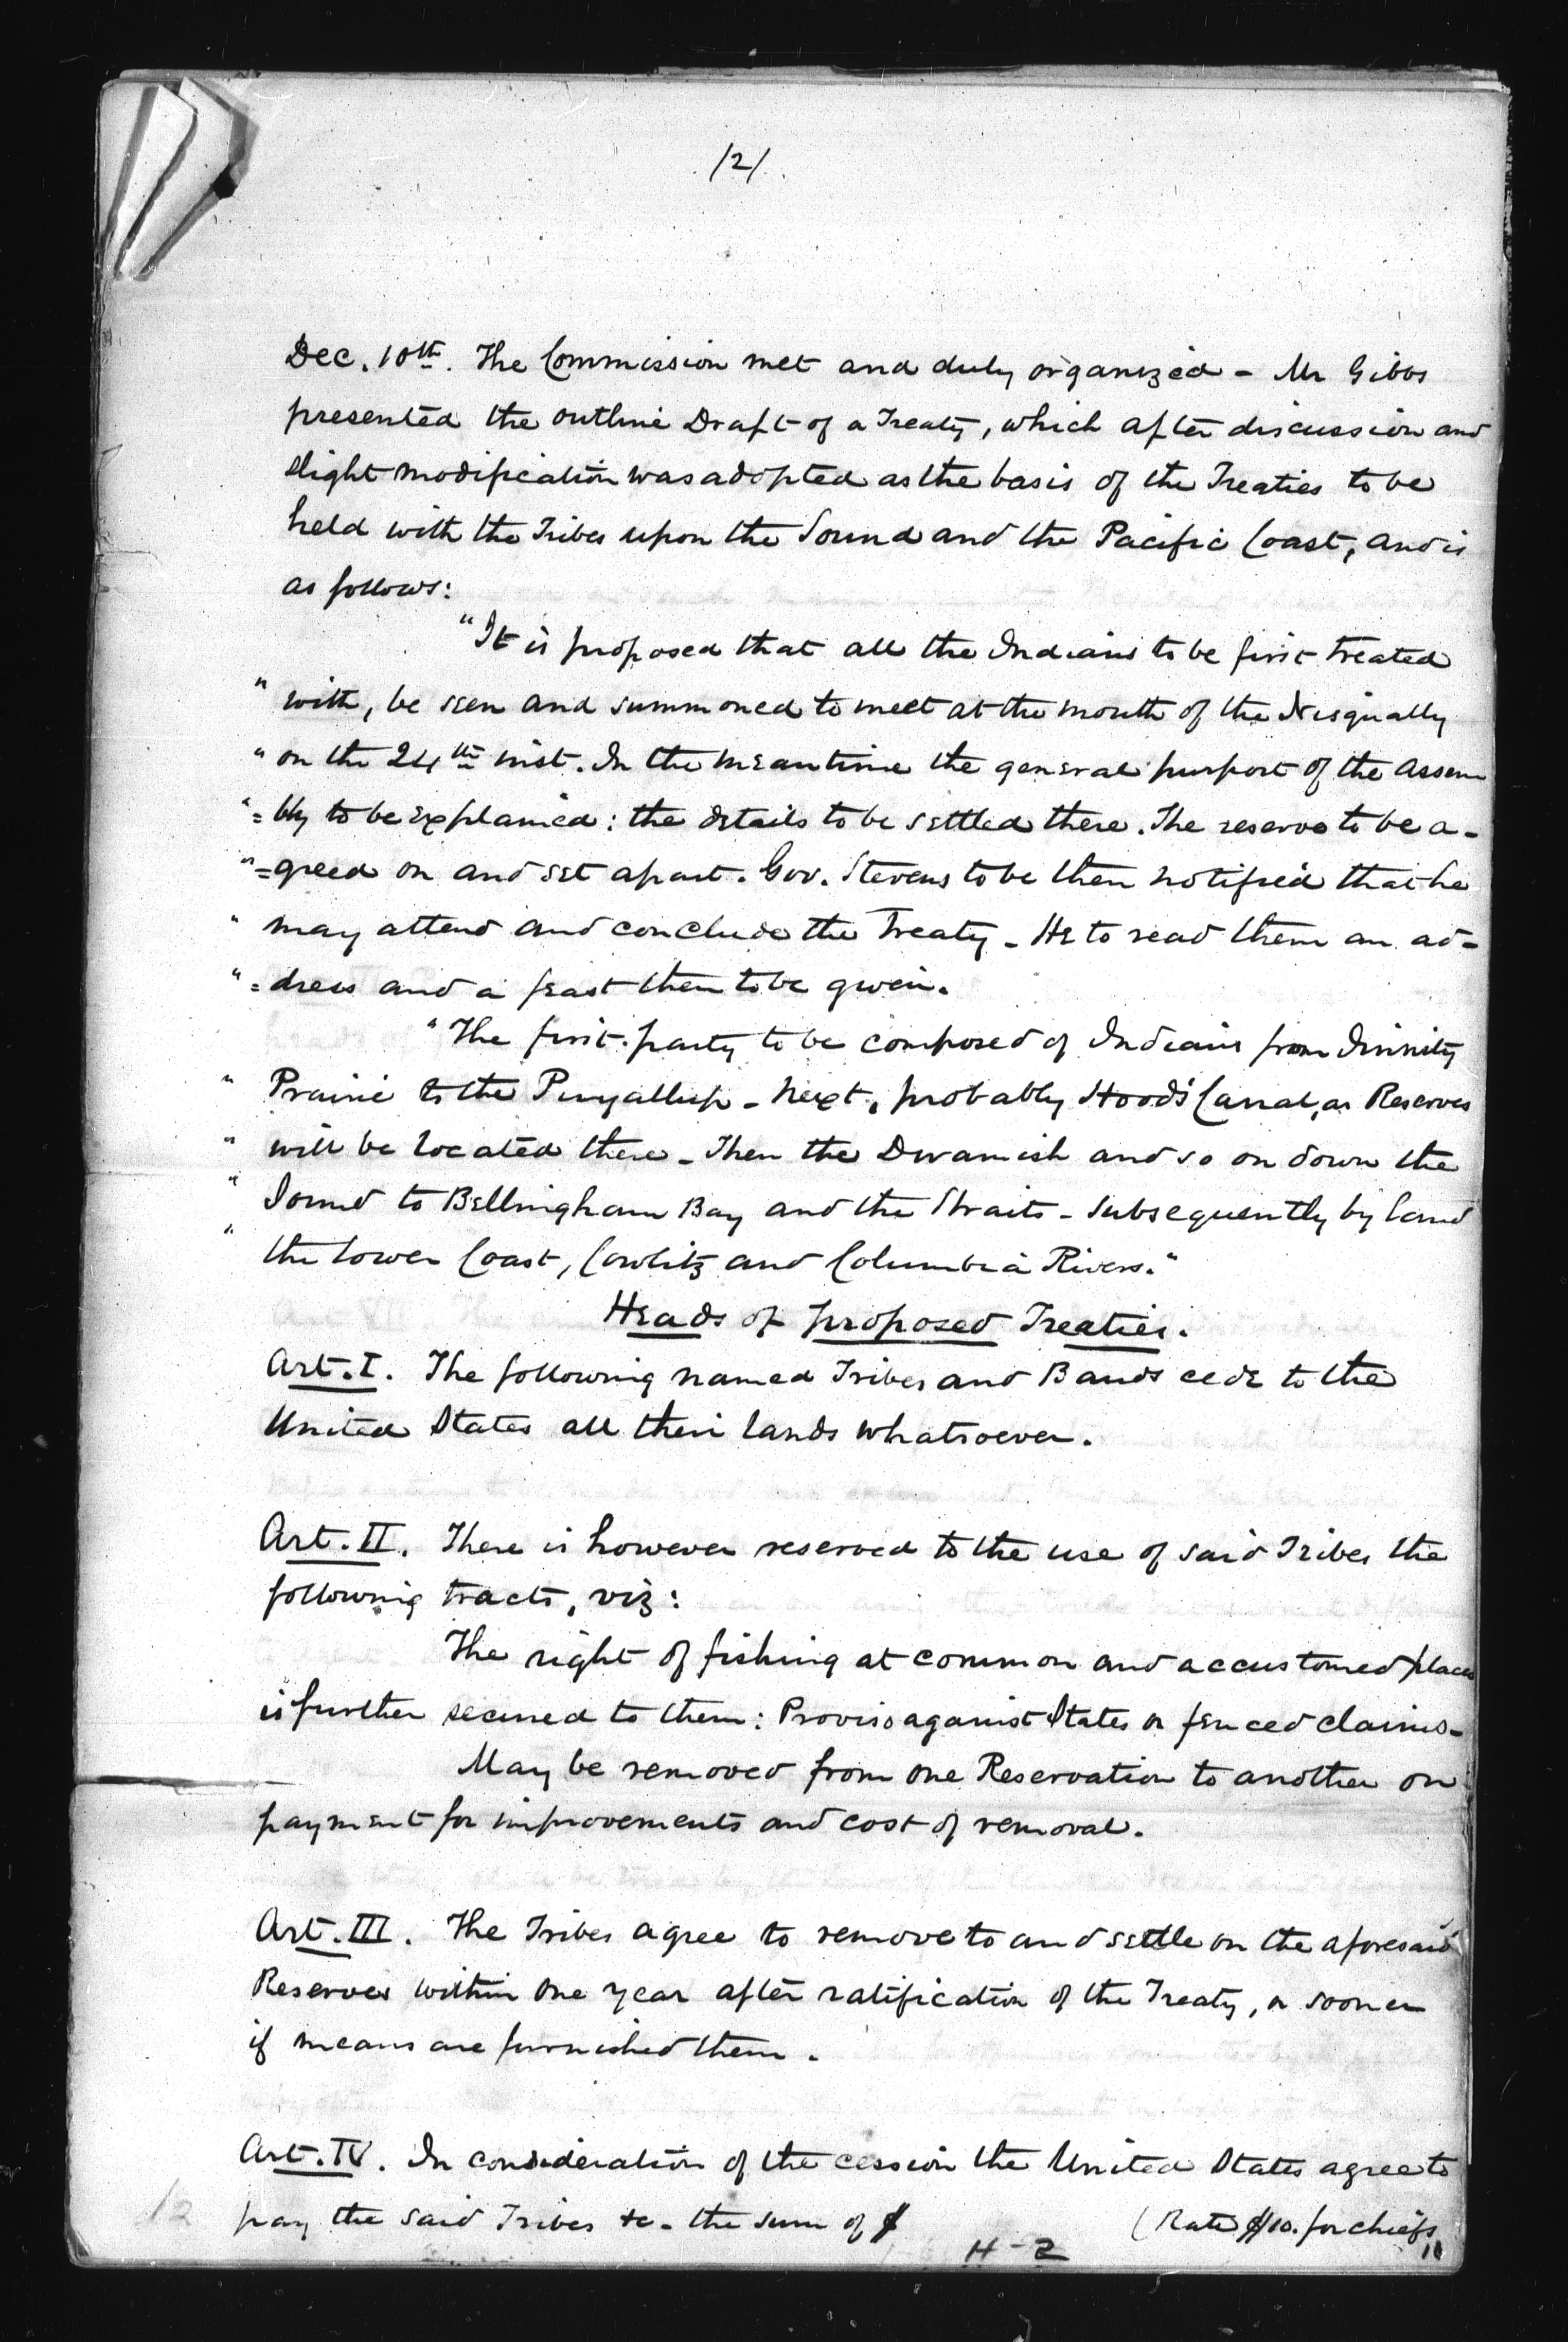 /2/.
Dec. 10th. The Commission met and duly organized - Mr Gibbs
presented the outline Draft of a Treaty, which after discussion and
slight modification was adopted as the basis of the Treaties to be
held with the Tribes upon the Sound and the Pacific Coast, and is
as follows:
"It is proposed that all the Indians to be first treated
" with, be seen and summoned to meet at the mouth of the Nisqually
" on the 24th inst. In the meantime the general purport of the Assem
"=bly to be explained: the details to be settled there. The reserve to be a-
"=greed on and set apart. Gov. Stevens to be then notified that he
" may attend and conclude the Treaty - He to read them an ad-
"=dress and a feast then to be given.
"The first party to be composed of Indians from Divinity
" Prairie to the Puyallup - next, probably Hood's Canal, as Reserves
" will be located there - Then the Dwamish and so on down the
" Sound to Bellingham Bay and the Straits - Subsequently by land
" the lower Coast, Cowlitz and Columbia Rivers."
Heads of proposed Treaties.
Art. I. The following named Tribes and Bands cede to the
United States all their lands whatsoever.
Art. II. There is however reserved to the use of said Tribes the
following tracts, viz:
The right of fishing at common and accustomed places
is further secured to them: Proviso against States or fenced claims -
May be removed from one Reservation to another on
payment for improvements and cost of removal.
Art. III. The Tribes agree to remove to and settle on the aforesaid
Reserves within one year after ratification of the Treaty, or sooner
if means are furnished them.
Art. IV. In consideration of the cession the United States agree to
pay the said Tribes &c - the sum of $ (Rate $10. for chiefs
12
H-2